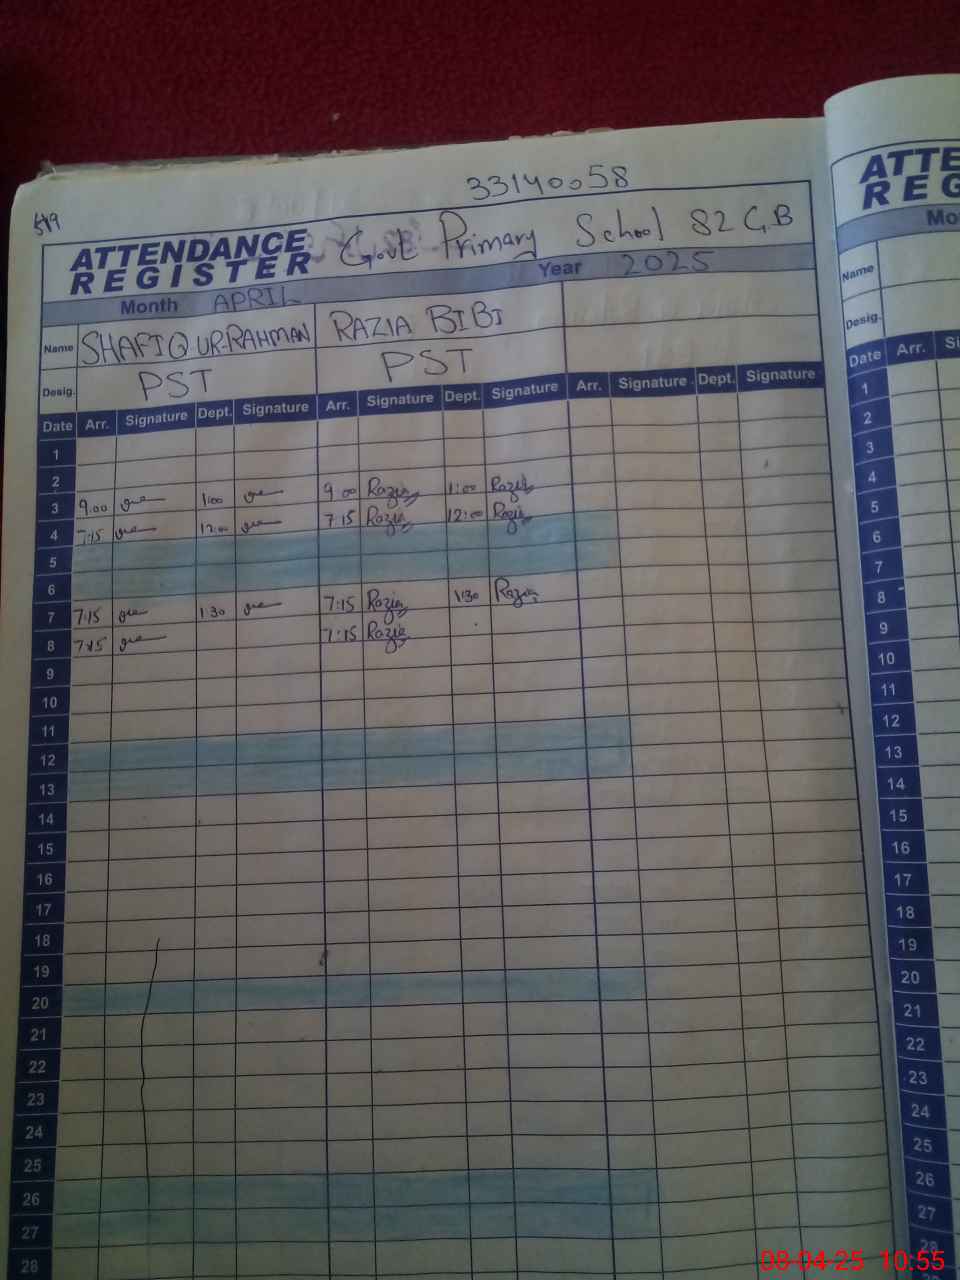 33140058
519
ATTENDANCE REGISTER Govt Primary School 82 G.B
Month APRIL Year 2025
Name SHAFIQ-UR-RAHMAN RAZIA BIBI
Desig. PST PST
Date Arr. Signature Dept. Signature Arr. Signature Dept. Signature Arr. Signature Dept. Signature
1
2
3 9:00 1:00 9:00 Razia 1:00 Razia
4 7:15 12:00 7:15 Razia 12:00 Razia
5
6
7 7:15 1:30 7:15 Razia 1:30 Razia
8 7:15 7:15 Razia
9
10
11
12
13
14
15
16
17
18
19
20
21
22
23
24
25
26
27
28
ATTE
REG
Mo
Name
Desig.
Date Arr. Si
1
2
3
4
5
6
7
8
9
10
11
12
13
14
15
16
17
18
19
20
21
22
23
24
25
26
27
28
08-04-25 10:55